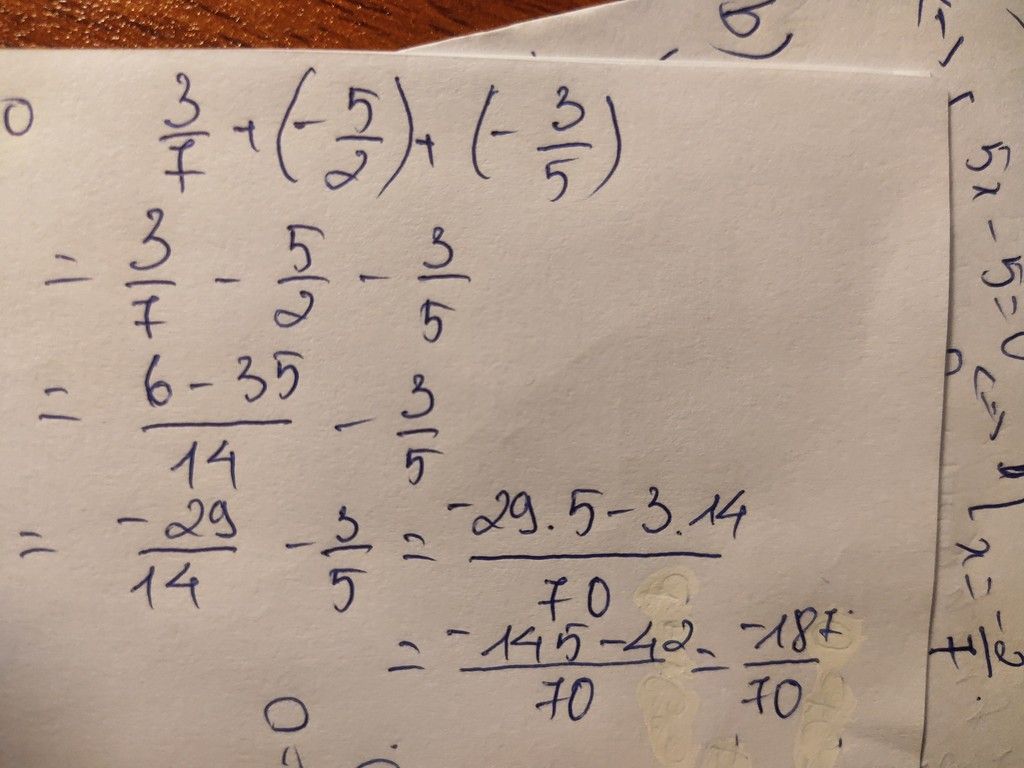 0 3/7 + (-5/2) + (-3/5)
= 3/7 - 5/2 - 3/5
= (6 - 35)/14 - 3/5
= -29/14 - 3/5 = (-29.5 - 3.14)/70
= (-145 - 42)/70 = -187/70
0
5x - 5 = 0
x =